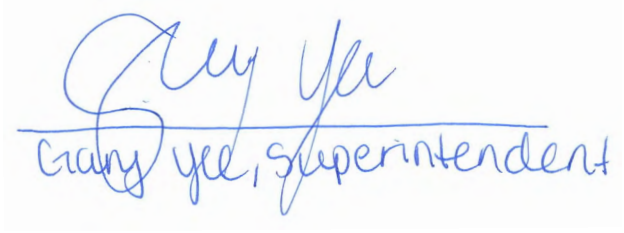 Gary Yee
Gary Yee, Superintendent